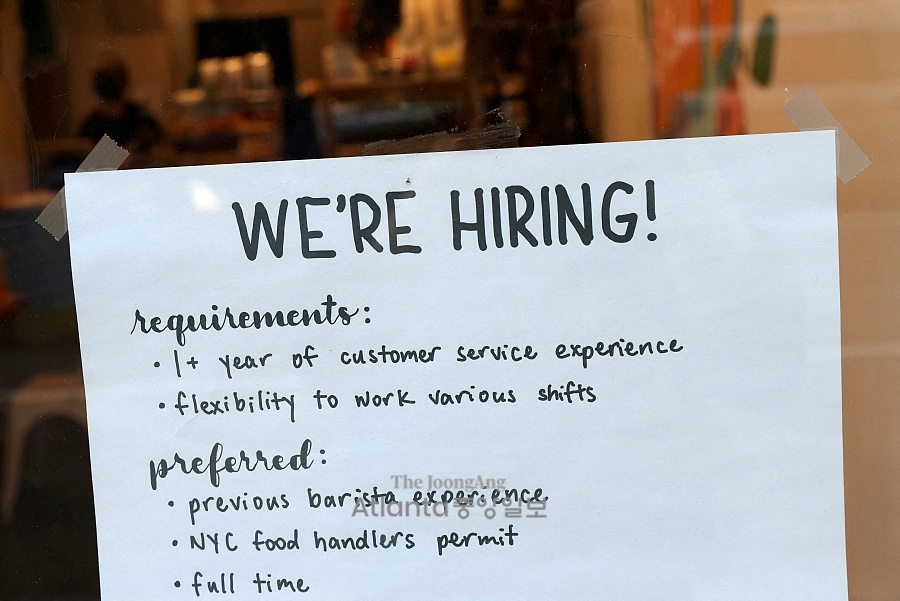 WE'RE HIRING!
requirements:
• 1+ year of customer service experience
• flexibility to work various shifts
preferred:
The JoongAng
• previous barista experience
Atlanta중앙일보
• NYC food handlers permit
• full time